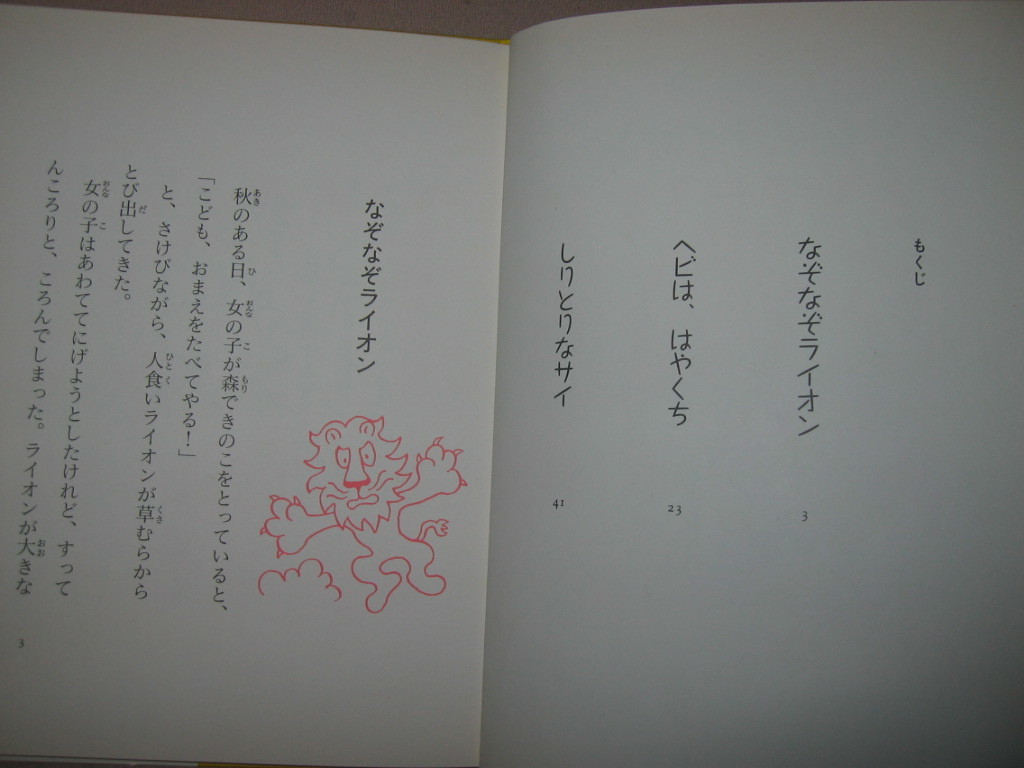 もくじ
なぞなぞライオン 3
ヘビは、はやくち 23
しりとりなサイ 41
なぞなぞライオン
秋のある日、女の子が森できのこをとっていると、
「こども、おまえをたべてやる!」
と、さけびながら、人食いライオンが草むらから
とび出してきた。
女の子はあわててにげようとしたけれど、すって
んころりと、ころんでしまった。ライオンが大きな
3